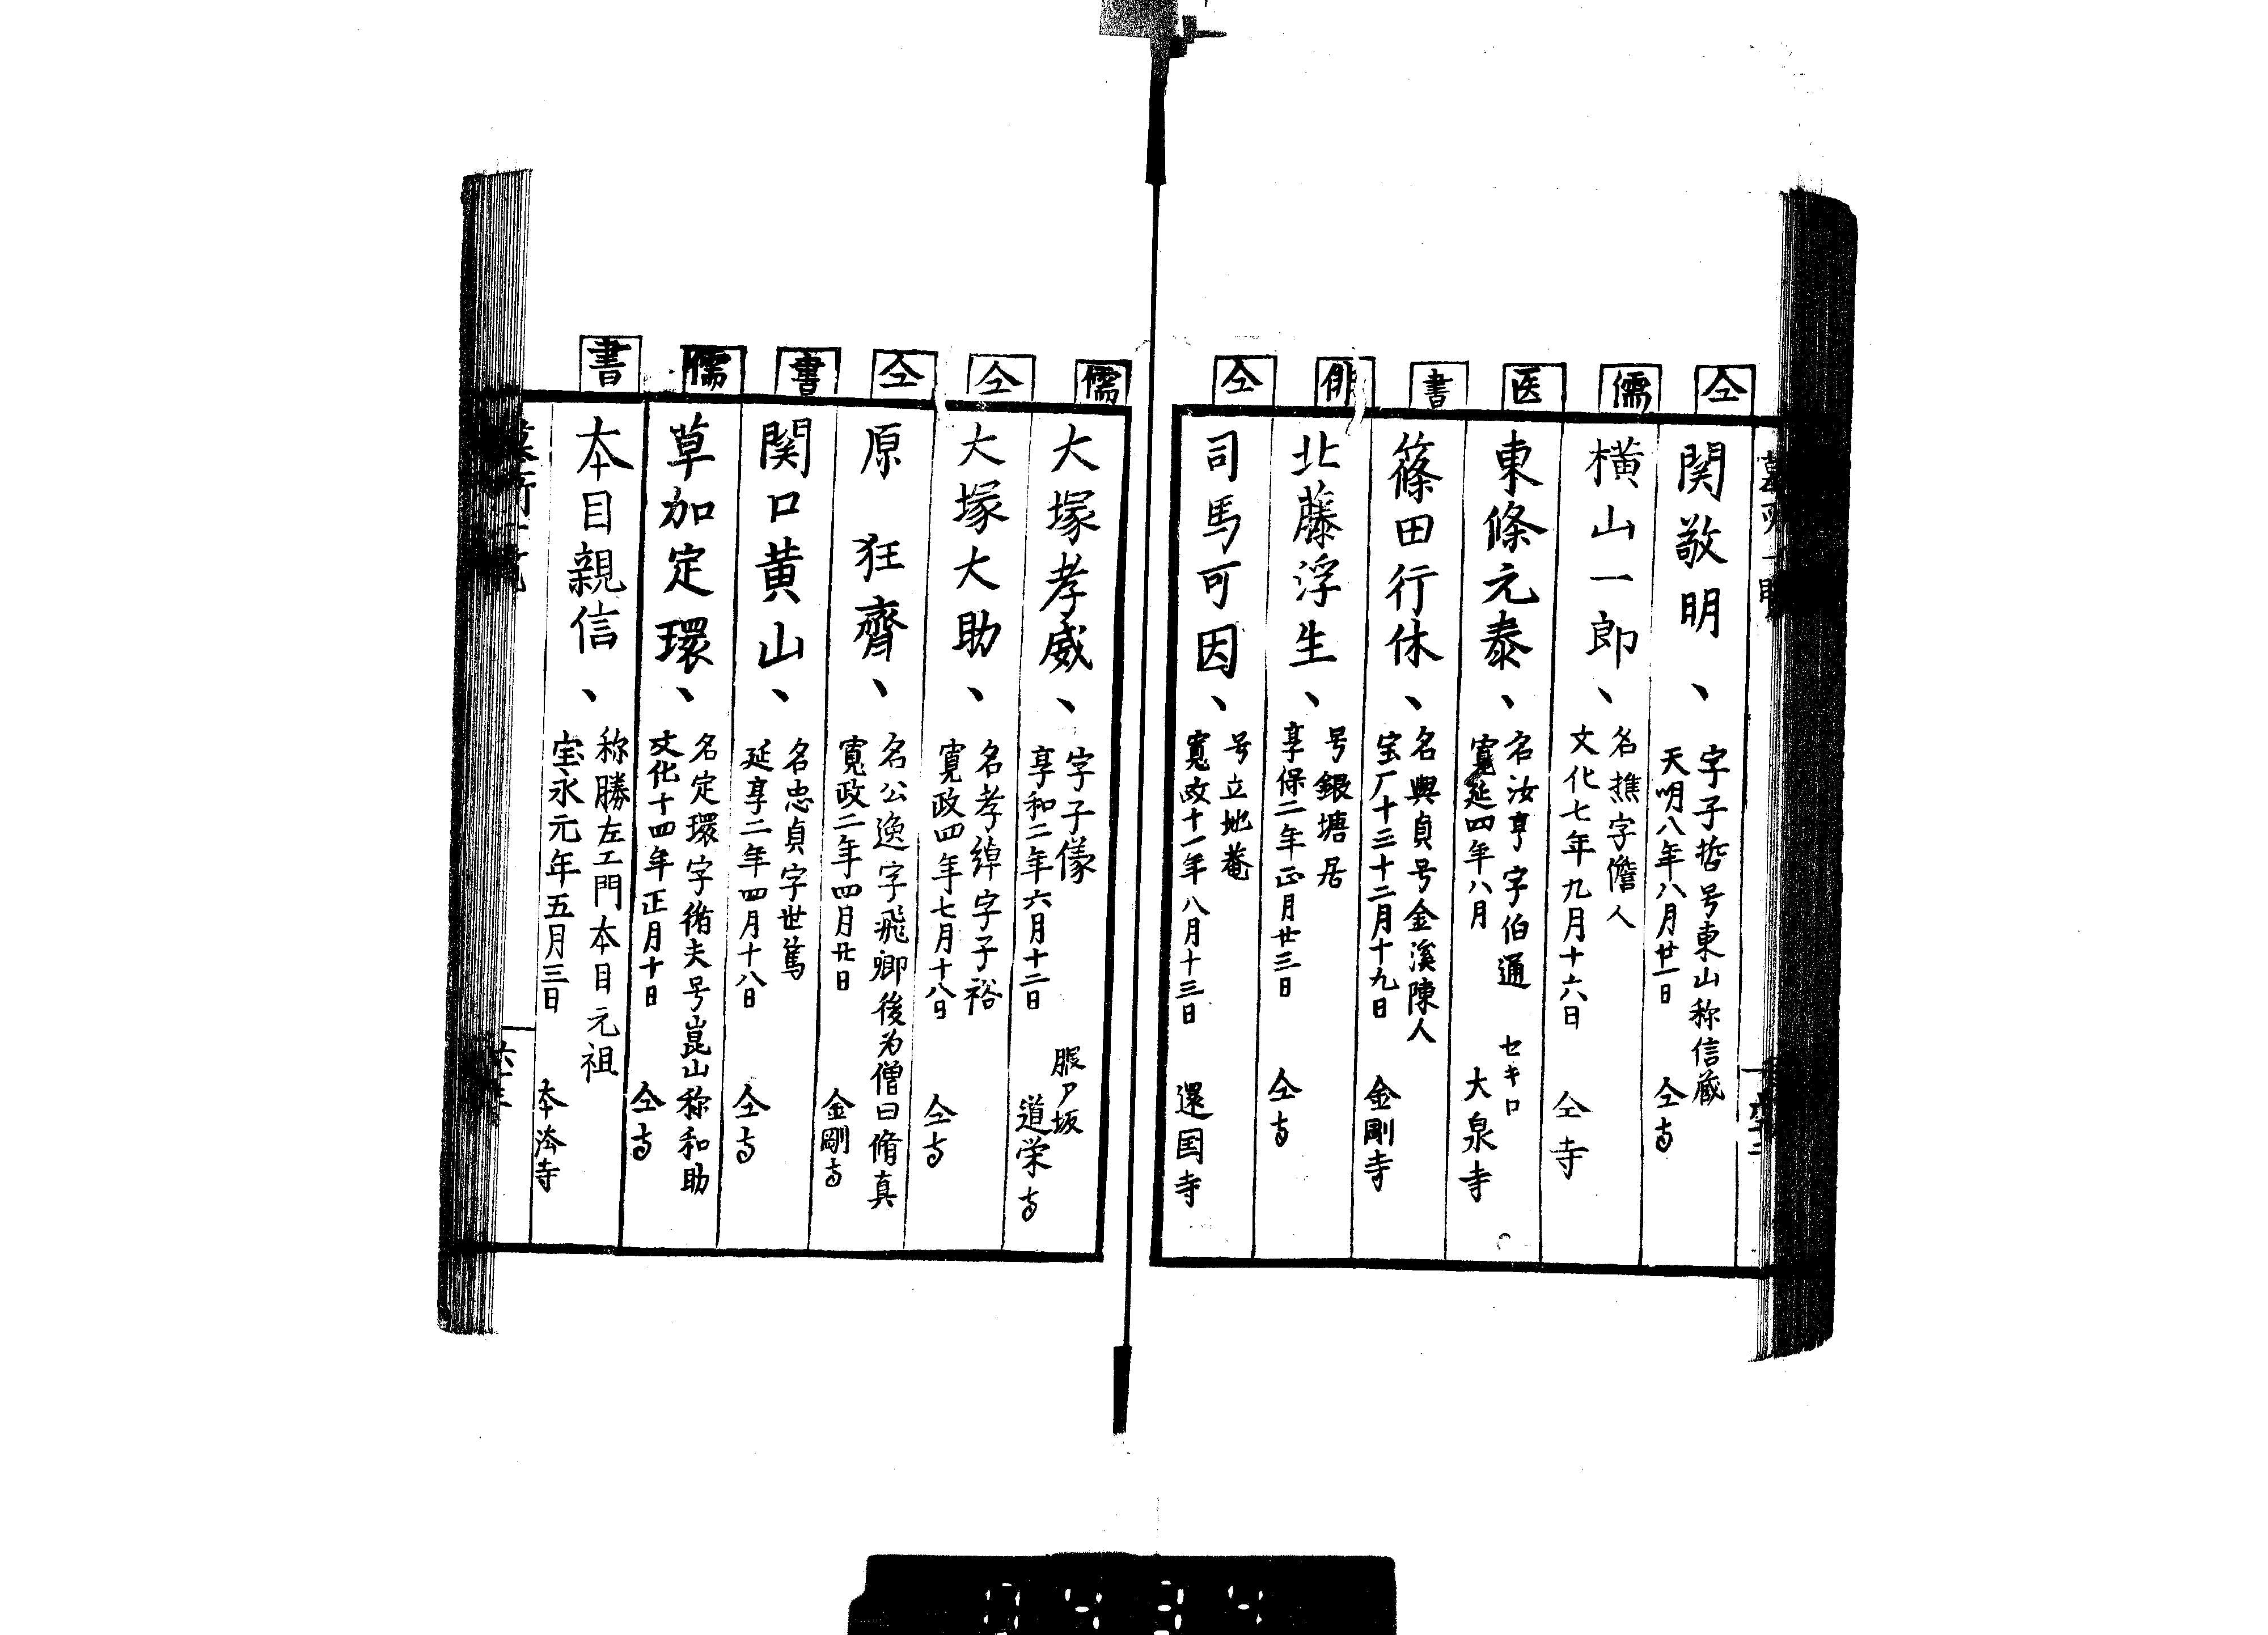 仝
関敬明、
字子哲号東山称信蔵
天明八年八月廿一日
仝寺
儒
横山一郎、
名撨字儋人
文化七年九月十六日
仝寺
医
東條元泰、
名汝亨字伯通
寛延四年八月
セキロ
大泉寺
書
篠田行休、
名興貞号金溪陳人
宝厂十三十二月十九日
金剛寺
俳
北藤浮生、
号銀塘居
享保二年正月廿三日
仝寺
仝
司馬可因、
号立地菴
寛政十一年八月十三日
還国寺
儒
大塚孝威、
字子儀
享和二年六月十二日
服ア坂
道栄寺
仝
大塚大助、
名孝綽字子裕
寛政四年七月十八日
仝寺
仝
原狂齊、
名公逸字飛卿後为僧曰脩真
寛政二年四月廿日
金剛寺
書
関口黄山、
名忠貞字世篤
延享二年四月十八日
仝寺
儒
草加定環、
名定環字循夫号崑山称和助
文化十四年正月十日
仝寺
書
本目親信、
称勝左エ門本目元祖
宝永元年五月三日
本法寺